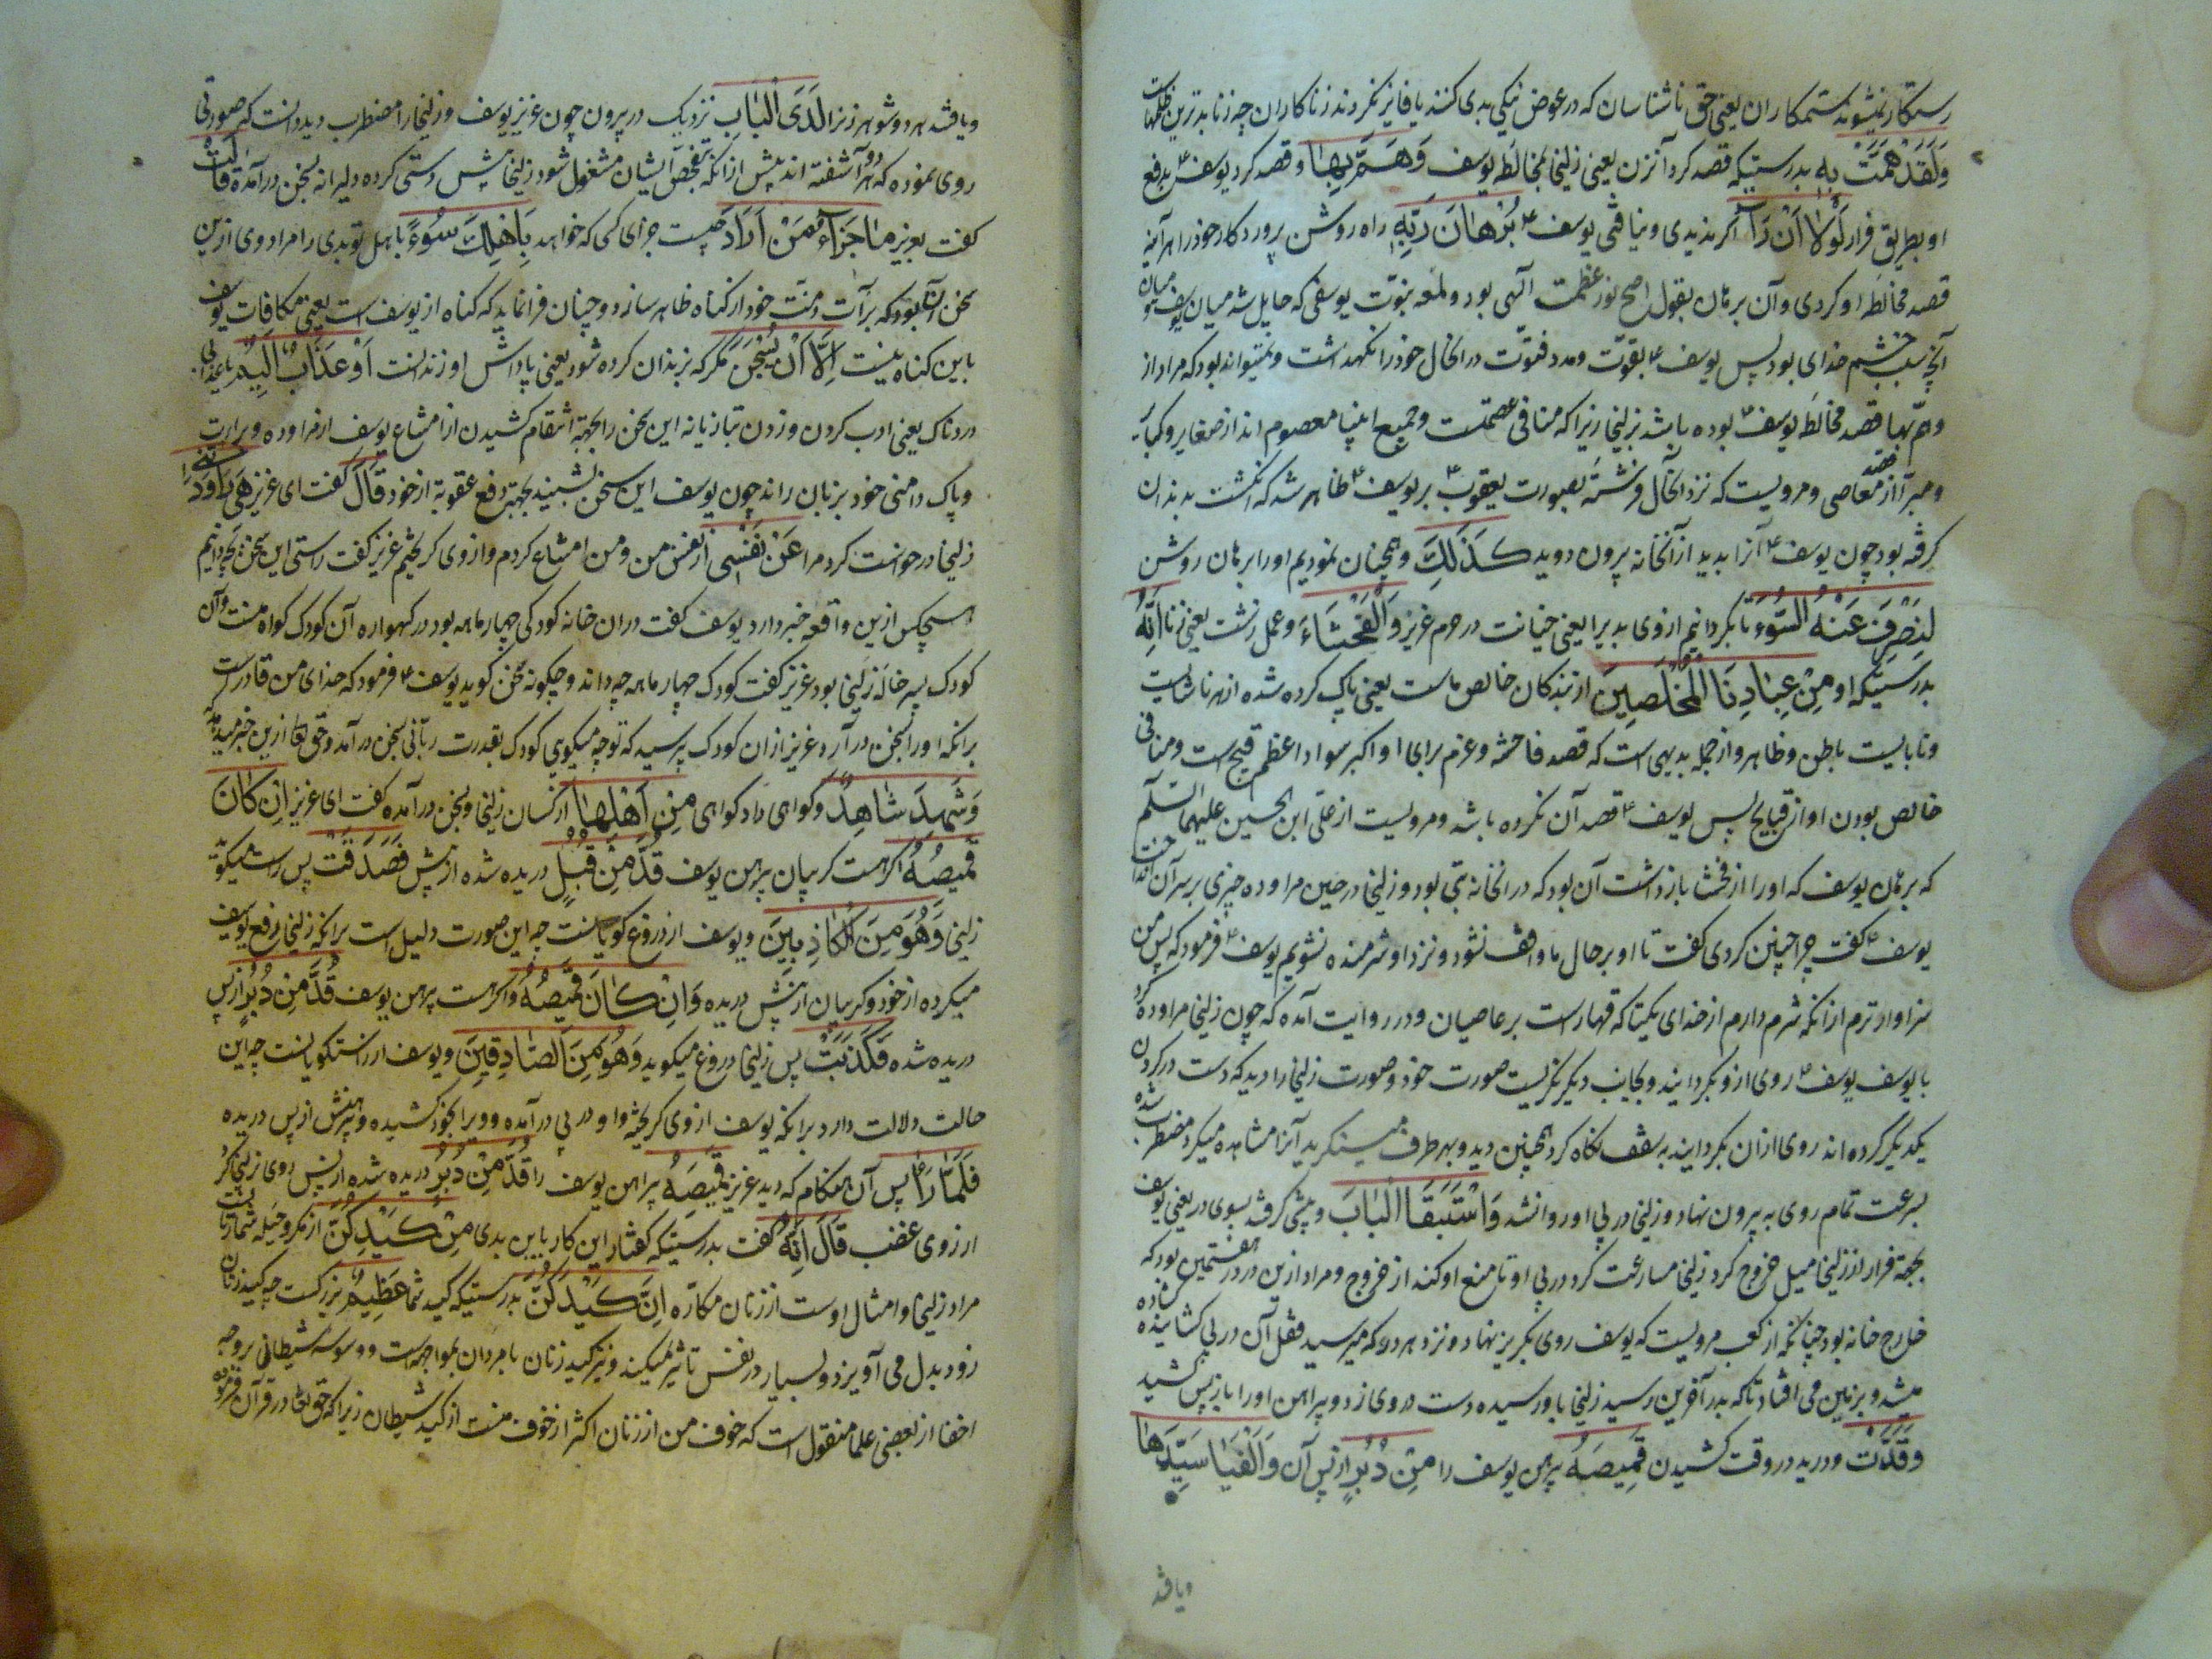 رستکار نمیشوند ستمکاران یعنی حق ناشناسان که در عوض نیکی بدی کنند یا فایز نکردند زناکاران چه زنا بدترین ظلمهاست
وَلَقَدْ هَمَّتْ بِهِ بدرستیکه قصد کرد آنزن یعنی زلیخا بمخالطه یوسف وَهَمَّ بِهَا و قصد کرد یوسف ع بدفع
او بطریق فرار لَوْلَا اَنْ رَاٰ اکر ندیدی و نیافتی یوسف ع بُرْهَانَ رَبِّهِ راه روشن پروردکار خود را هر آینه
قصد مخالطه او کردی و آن برهان بقول اصح نور عظمت الهی بود و لمعه نبوت یوسفی که حایل شد میان یوسف و میان
آنچه سبب خشم خدای بود پس یوسف ع بقوّت و مدد فتوّت در انحال خود را نکهداشت و میتواند بود که مراد از
وهمّ بها قصد مخالطه یوسف ع بوده باشد بزلیخا زیرا که منافی عصمتست و جمیع انبیا معصوم اند از صغایر و کبایر
و مبرّا از قصد معاصی و مرویست که نزد انحال فرشته بصورت یعقوب ع بر یوسف ع ظاهر شد که انکشت بدندان
کرفته بود چون یوسف ع آنرا بدید از آنخانه بیرون دوید کَذٰلِكَ و همچنان نمودیم او را برهان روشن
لِنَصْرِفَ عَنْهُ السُّوْءَ تا بکردانیم از وی بد یرا یعنی خیانت در حرم عزیز وَالْفَحْشَاءَ و عمل زشت یعنی زنا اِنَّهُ
بدرستیکه او مِنْ عِبَادِنَا الْمُخْلَصِينَ از بندکان خالص ماست یعنی پاک کرده شده از هر ناشایست
و نابایست باطن و ظاهر و از جمله بدیهی است که قصد فاحشه و عزم برای او اکبر سواد اعظم قبیح است و منافی
خالص بودن او از قبایح پس یوسف ع قصد آن نکرده باشد و مرویست از علی ابن الحسین علیهما السلم
که برهان یوسف که او را از فحشا بازداشت آن بود که در انخانه بتی بود و زلیخا در حین مراوده چیزی بر سر آن انداخت
یوسف ع کفت چرا چنین کردی کفت تا او بر حال ما واقف نشود و نزد او شرمنده نشویم یوسف ع فرمود که پس من
سزاوارترم از انکه شرم دارم از خدای یکتا که قهار است بر عاصیان و در روایت آمده که چون زلیخا مراوده کرد
با یوسف یوسف ع روی از و بکردانید و بجانب دیکر نکریست صورت خود و صورت زلیخا را دید که دست در کردن
یکدیکر کرده اند روی از ان بکردانید به سقف نکاه کرد همچنین دید و بهر طرف که مینکرید آنرا مشاهده میکرد مضطرب شده
بسرعت تمام روی به بیرون نهاد و زلیخا در پی او روانشد وَاسْتَبَقَا الْبَابَ و پیشی کرفتند بسوی در یعنی یوسف
بجهة فرار از زلیخا میل خروج کرد زلیخا مسارعت کرد در پی او تا منع او کند از خروج و مراد ازین در در هفتمین بود که
خارج خانه بود چنانکه از کعب مرویست که یوسف روی بکریز نهاد و نزد هر در که میرسید قفل آن در بی کشاینده کشاده
میشد و بزمین می افتاد تا که بدر آخرین رسید زلیخا باو رسیده دست در وی زد و پیراهن او را باز پس کشید
وَقَدَّتْ و درید در وقت کشیدن قَمِيصَهُ پیراهن یوسف را مِنْ دُبُرٍ از پس آن وَاَلْفَيَا سَيِّدَهَا
ویافتند
ویافتند هر دو شوهر زنرا لَدَى الْبَابِ نزدیک در بیرون چون عزیز یوسف و زلیخا را مضطرب دید دانست که صورتی
روی نموده که هر دو آشفته اند پیش از انکه بتفحص ایشان مشغول شود زلیخا پیش دستی کرده دلیرانه بسخن درآمده قَالَتْ
کفت بعزیز مَا جَزَاءُ مَنْ اَرَادَ چیست جزای کسی که خواهد بِاَهْلِكَ سُوْءً باهل تو بدی را مراد وی ازین
سخن آن بود که برآت ذمت خود از کناه ظاهر سازد و چنان فرا نماید که کناه از یوسف است یعنی مکافات یوسف
باین کناه نیست اِلَّا اَنْ يُسْجَنَ مکر که بزندان کرده شود یعنی پاداش او زندانست اَوْ عَذَابٌ اَلِيمٌ یا عذابی
دردناک یعنی ادب کردن و زدن بتازیانه این سخن را بجهة انتقام کشیدن از امتناع یوسف از مراوده و برات
و پاک دامنی خود بزبان راند چون یوسف این سخن بشنید بجهة دفع عقوبة از خود قَالَ کفت ای عزیز هِيَ رَاوَدَتْنِي
زلیخا درخواست کرد مرا عَنْ نَفْسِي از نفس من و من امتناع کردم و از وی کریختم عزیز کفت راستی این سخن بچه دانیم
هیچکس ازین واقعه خبر دارد یوسف کفت در ان خانه کودکی چهار ماهه بود در کهواره آن کودک کواه منست و آن
کودک پسر خاله زلیخا بود عزیز کفت کودک چهار ماهه چه داند و چکونه سخن کوید یوسف ع فرمود که خدای من قادرست
برانکه او را بسخن درآرد عزیز از ان کودک پرسید که تو چه میکویی کودک بقدرت ربّانی بسخن درآمد و حق تعا ازین خبر میدهد که
وَشَهِدَ شَاهِدٌ و کواهی داد کواهی مِنْ اَهْلِهَا از کسان زلیخا و بسخن درآمده کفت ای عزیز اِنْ كَانَ
قَمِيصُهُ اکر هست کریبان پیراهن یوسف قُدَّ مِنْ قُبُلٍ دریده شده از پیش فَصَدَقَتْ پس راست میکوید
زلیخا وَهُوَ مِنَ الْكَاذِبِينَ و یوسف از دروغ کویانست چه این صورت دلیل است برانکه زلیخا دفع یوسف
میکرده از خود و کریبان از پیش دریده وَاِنْ كَانَ قَمِيصُهُ و اکر هست پیراهن یوسف قُدَّ مِنْ دُبُرٍ از پس
دریده شده فَكَذَبَتْ پس زلیخا دروغ میکوید وَهُوَ مِنَ الصَّادِقِينَ و یوسف از راستکویانست چه این
حالت دلالت دارد برانکه یوسف از وی کریخته و او در پی درآمده و ویرا بخود کشیده و پیراهنش از پس دریده
فَلَمَّا رَاٰ پس آن هنکام که دید عزیز قَمِيصَهُ پیراهن یوسف را قُدَّ مِنْ دُبُرٍ دریده شده از پس روی بزلیخا کرد
از روی غضب قَالَ اِنَّهُ کفت بدرستیکه کفتار این کار بایین بدی مِنْ كَيْدِكُنَّ از مکر و حیله شما زنانست
مراد زلیخا و امثال اوست از زنان مکاره اِنَّ كَيْدَكُنَّ بدرستیکه کید شما عَظِيمٌ بزرکست چه کید زنان
زود بدل می آویزد و بسیار در نفس تاثیر میکند و نیز کید زنان با مردان بمواجهه است و وسوسه شیطانی بر وجه
اخفا از بعضی علما منقول است که خوف من از زنان اکثر از خوف منست از کید شیطان زیرا که حق تعا در قرآن فرموده